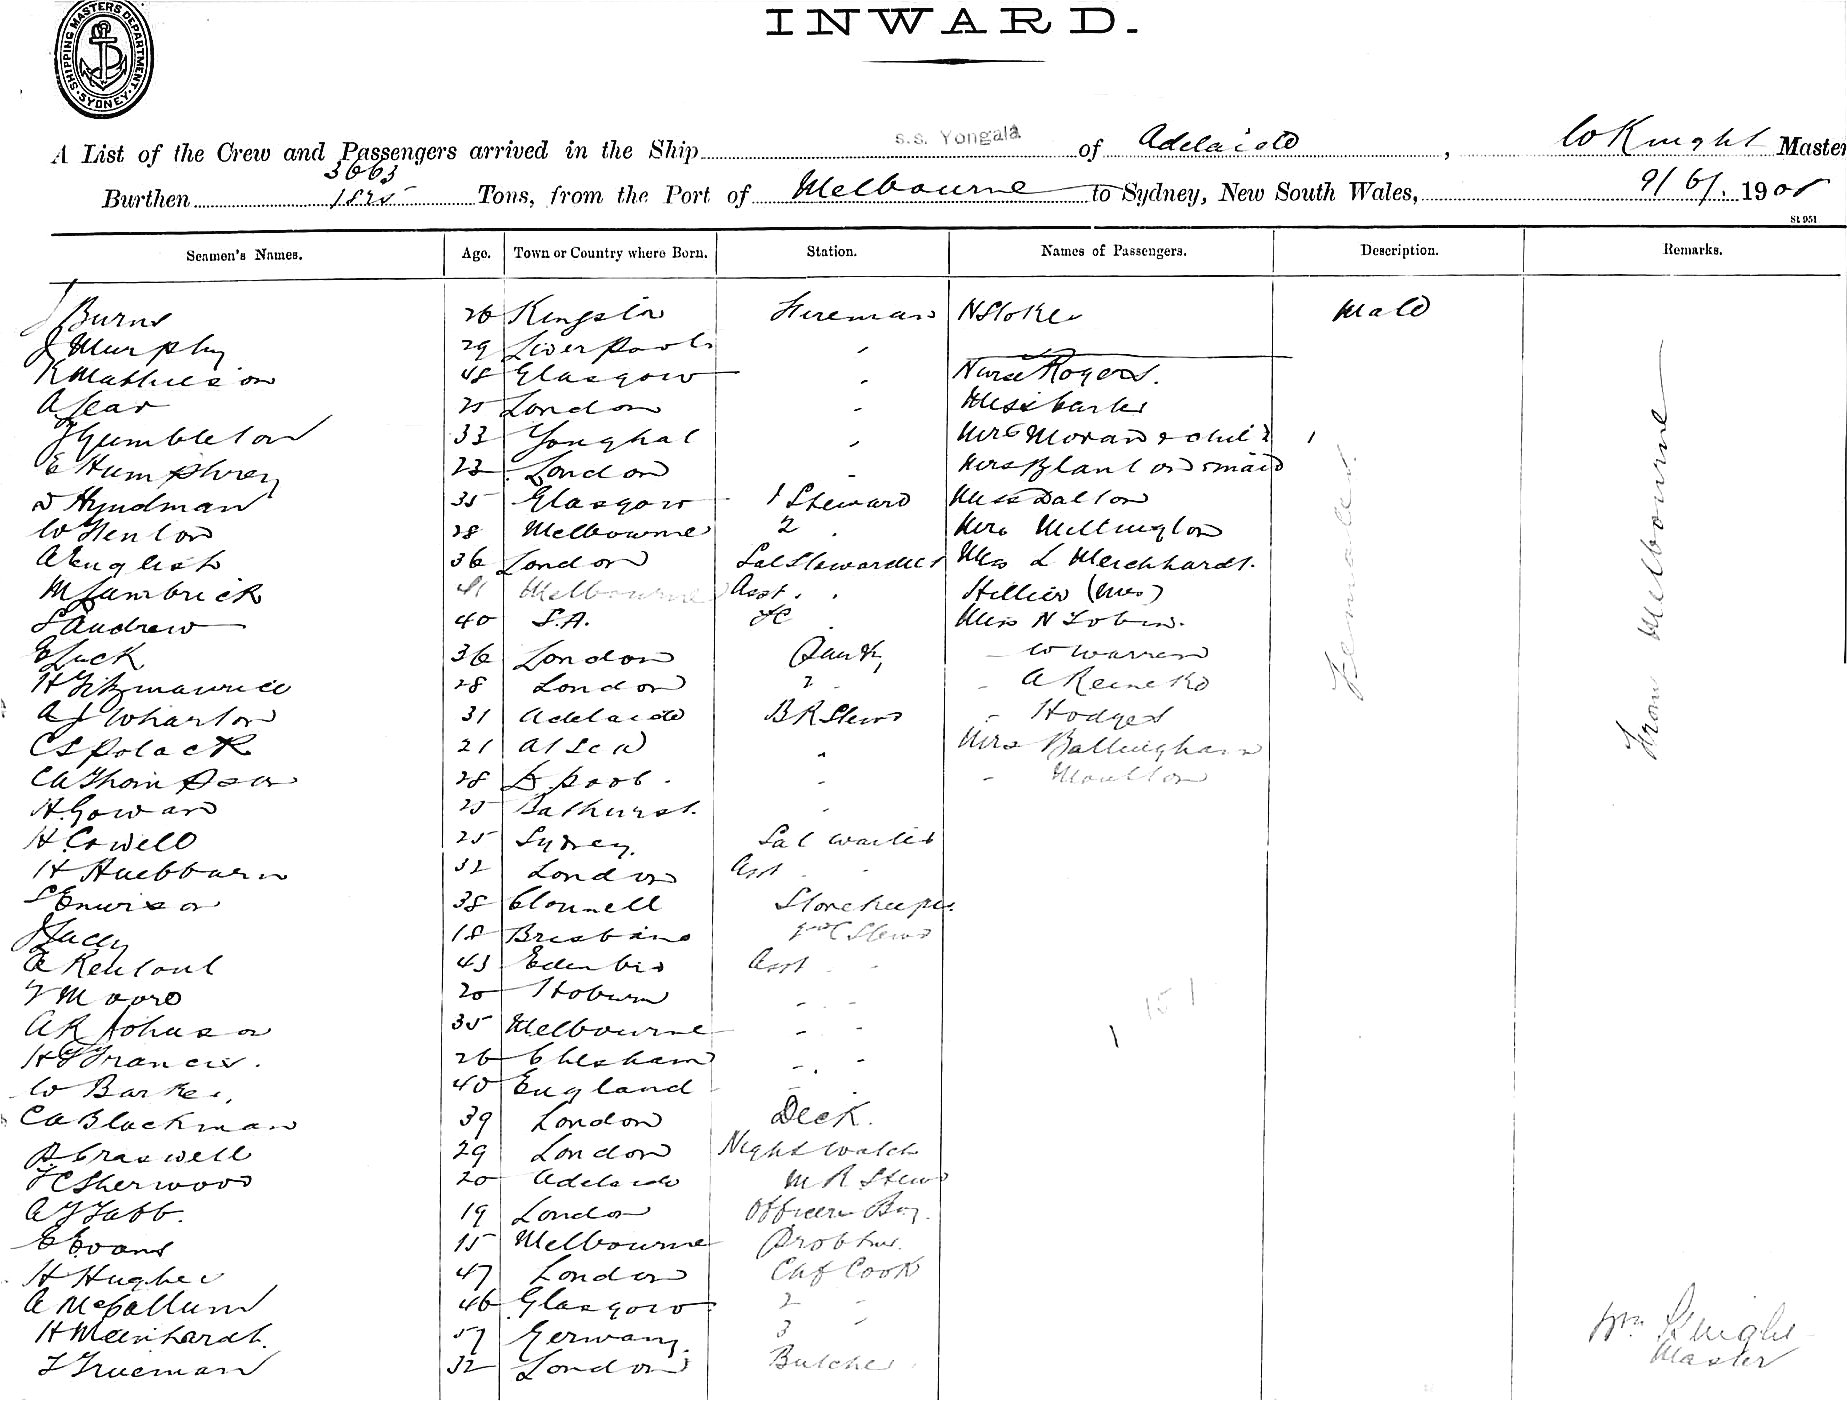 INWARD.
SHIPPING MASTERS DEPARTMENT. SYDNEY.
A List of the Crew and Passengers arrived in the Ship s.s. Yongala of Adelaide, W Knight Master
3663
Burthen 1825 Tons, from the Port of Melbourne to Sydney, New South Wales, 9/6/. 1908
St 951
Seamen's Names. Age. Town or Country where Born. Station. Names of Passengers. Description. Remarks.
J Burns 26 Kingston Fireman N Stokes Male
J Murphy 29 Liverpool "
R Mathieson 48 Glasgow " Nurse Rogers.
A Sear 25 London " Miss Carter
J Gumbleton 33 Youghal " Mrs Moran & child 1
E Humphrey 23 London " Mrs Blanton & maid
D Hyndman 35 Glasgow 1 Steward Miss Dalton
W Henton 28 Melbourne 2 " Mrs Millington
A English 36 London Sal Stewardess Miss L Merchhardt.
M Lambrick 41 Melbourne Asst. " Hillier (Mrs)
S Andrew 40 S.A. Miss N Tobin.
E Luck 36 London Pantry " W Warren
H Fitzmaurice 28 London 2 " A Reineko
A J Wharton 31 Adelaide B R Stewd " Hodges
C S Polack 21 At Sea " Mrs Ballingham
C A Thompson 28 L'pool. " " Moulton
H. Gowan 25 Bathurst. "
H. Cowell 25 Sydney. Sal Waiter
H Huebbarn 32 London Asst "
S Enwison 38 Clonmell Storekeeper
J Lacey 18 Brisbane Stewd
A Rentoul 43 Edenbro Asst "
T Moore 20 Hoburn " "
A R Johnson 35 Melbourne " "
H F Francis. 26 Chesham " "
W Barker. 40 England " "
C A Blackman 39 London Deck.
Craswell 29 London Night Watch
F C Sherwood 20 Adelaide M R Stewd
A J Tabb. 19 London Officers Boy.
E Evans 15 Melbourne
H Hughes 47 London Chf Cook
A McCallum 46 Glasgow 2 "
H Meinhardt. 57 Germany. 3 "
T Trueman 32 London Butcher
Females.
From Melbourne
151
Wm Knight
Master